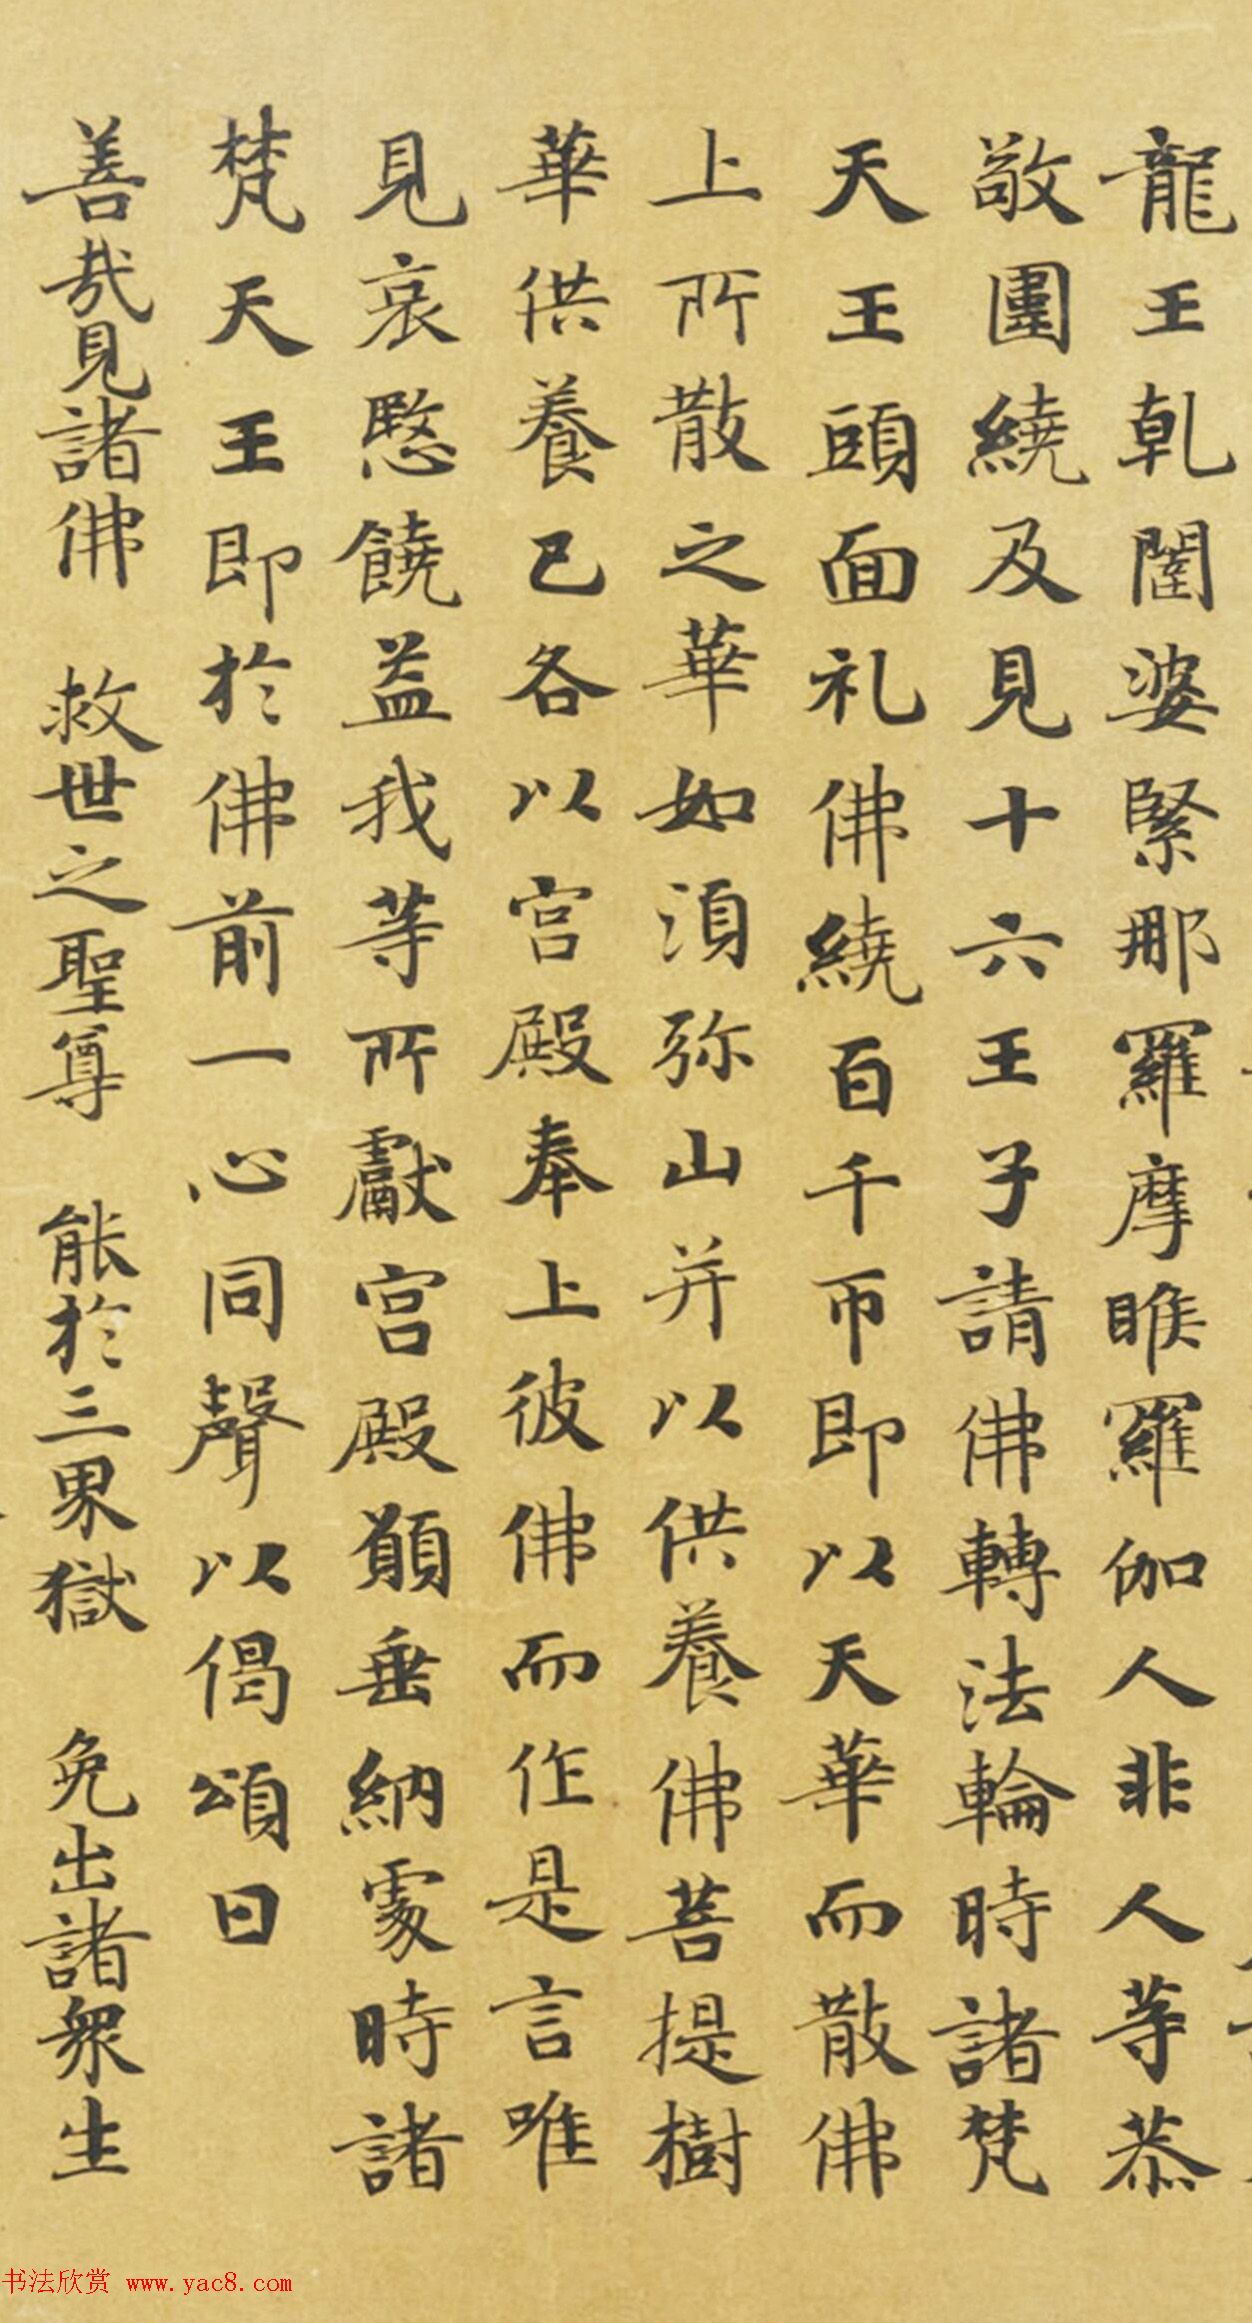 龍王乹闥婆緊那羅摩睺羅伽人非人等恭
敬圍繞及見十六王子請佛轉法輪時諸梵
天王頭面礼佛繞百千帀即以天華而散佛
上所散之華如須弥山并以供養佛菩提樹
華供養已各以宮殿奉上彼佛而作是言唯
見哀愍饒益我等所獻宮殿願垂納處時諸
梵天王即於佛前一心同聲以偈頌曰
善哉見諸佛 救世之聖尊 能於三界獄 免出諸衆生
书法欣赏 www.yac8.com